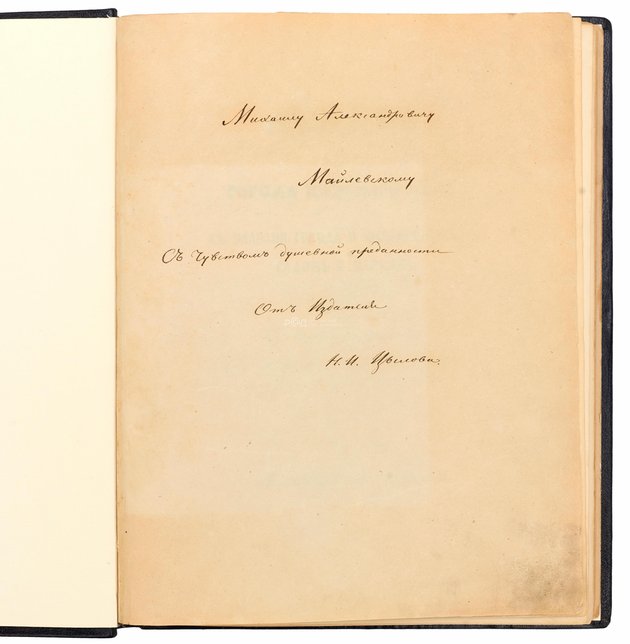 Михаилу Александровичу
Майлевскому
Съ Чувствомъ душевной преданности
Отъ Издателя
Н. И. Цылова.